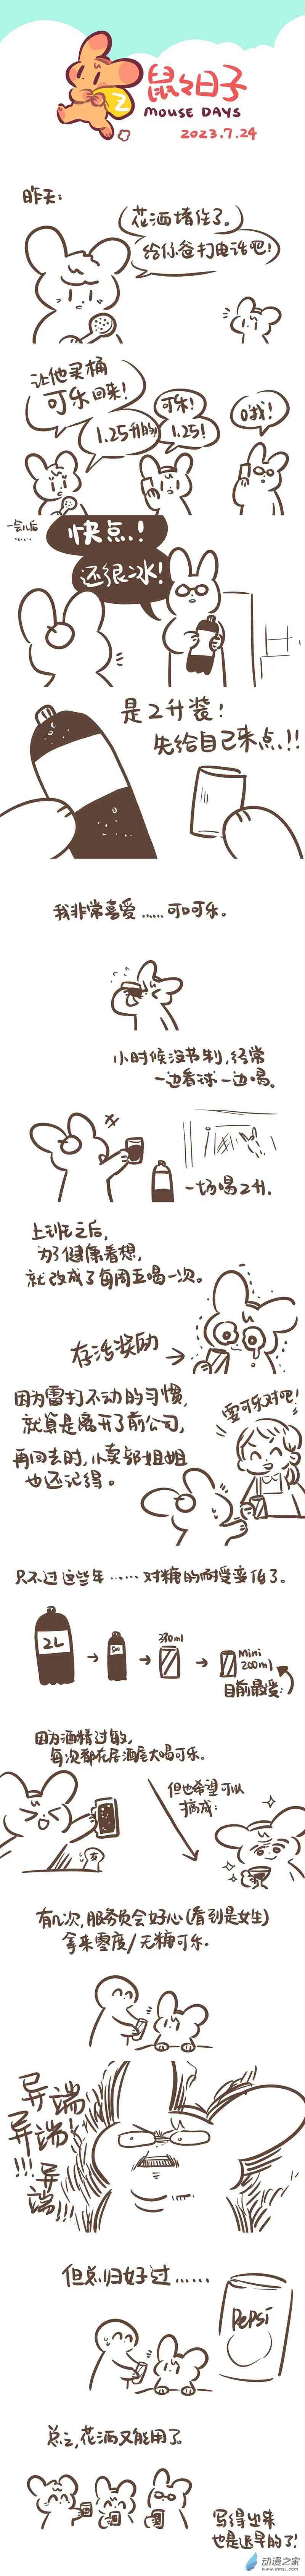 鼠々日子
MOUSE DAYS
2023.7.24
昨天:
花洒堵住了。
给你爸打电话吧!
让他买桶
可乐回来!
1.25升的!
可乐!
1.25!
哦!
一会儿后
......
快点!
还很冰!
是2升装!
先给自己来点!!
我非常喜爱......可口可乐。
小时候没节制,经常
一边看球一边喝。
一场喝2升.
上班之后,
为了健康着想,
就改成了每周五喝一次。
存活奖励
因为雷打不动的习惯,
就算是离开了前公司,
再回去时,小卖部姐姐
也还记得。
要可乐对吧!
只不过这些年......对糖的耐受变低了。
2L
500
330ml
mini
200ml
目前最爱
因为酒精过敏,
每次都在居酒屋大喝可乐。
友
但也希望可以
搞成:
有几次,服务员会好心(看到是女生)
拿来零度/无糖可乐.
异端
异端!
!!!异端!!!
但总归好过......
Pepsi
总之,花洒又能用了。
写得出来
也是迟早的了!
动漫之家
www.dmzj.com